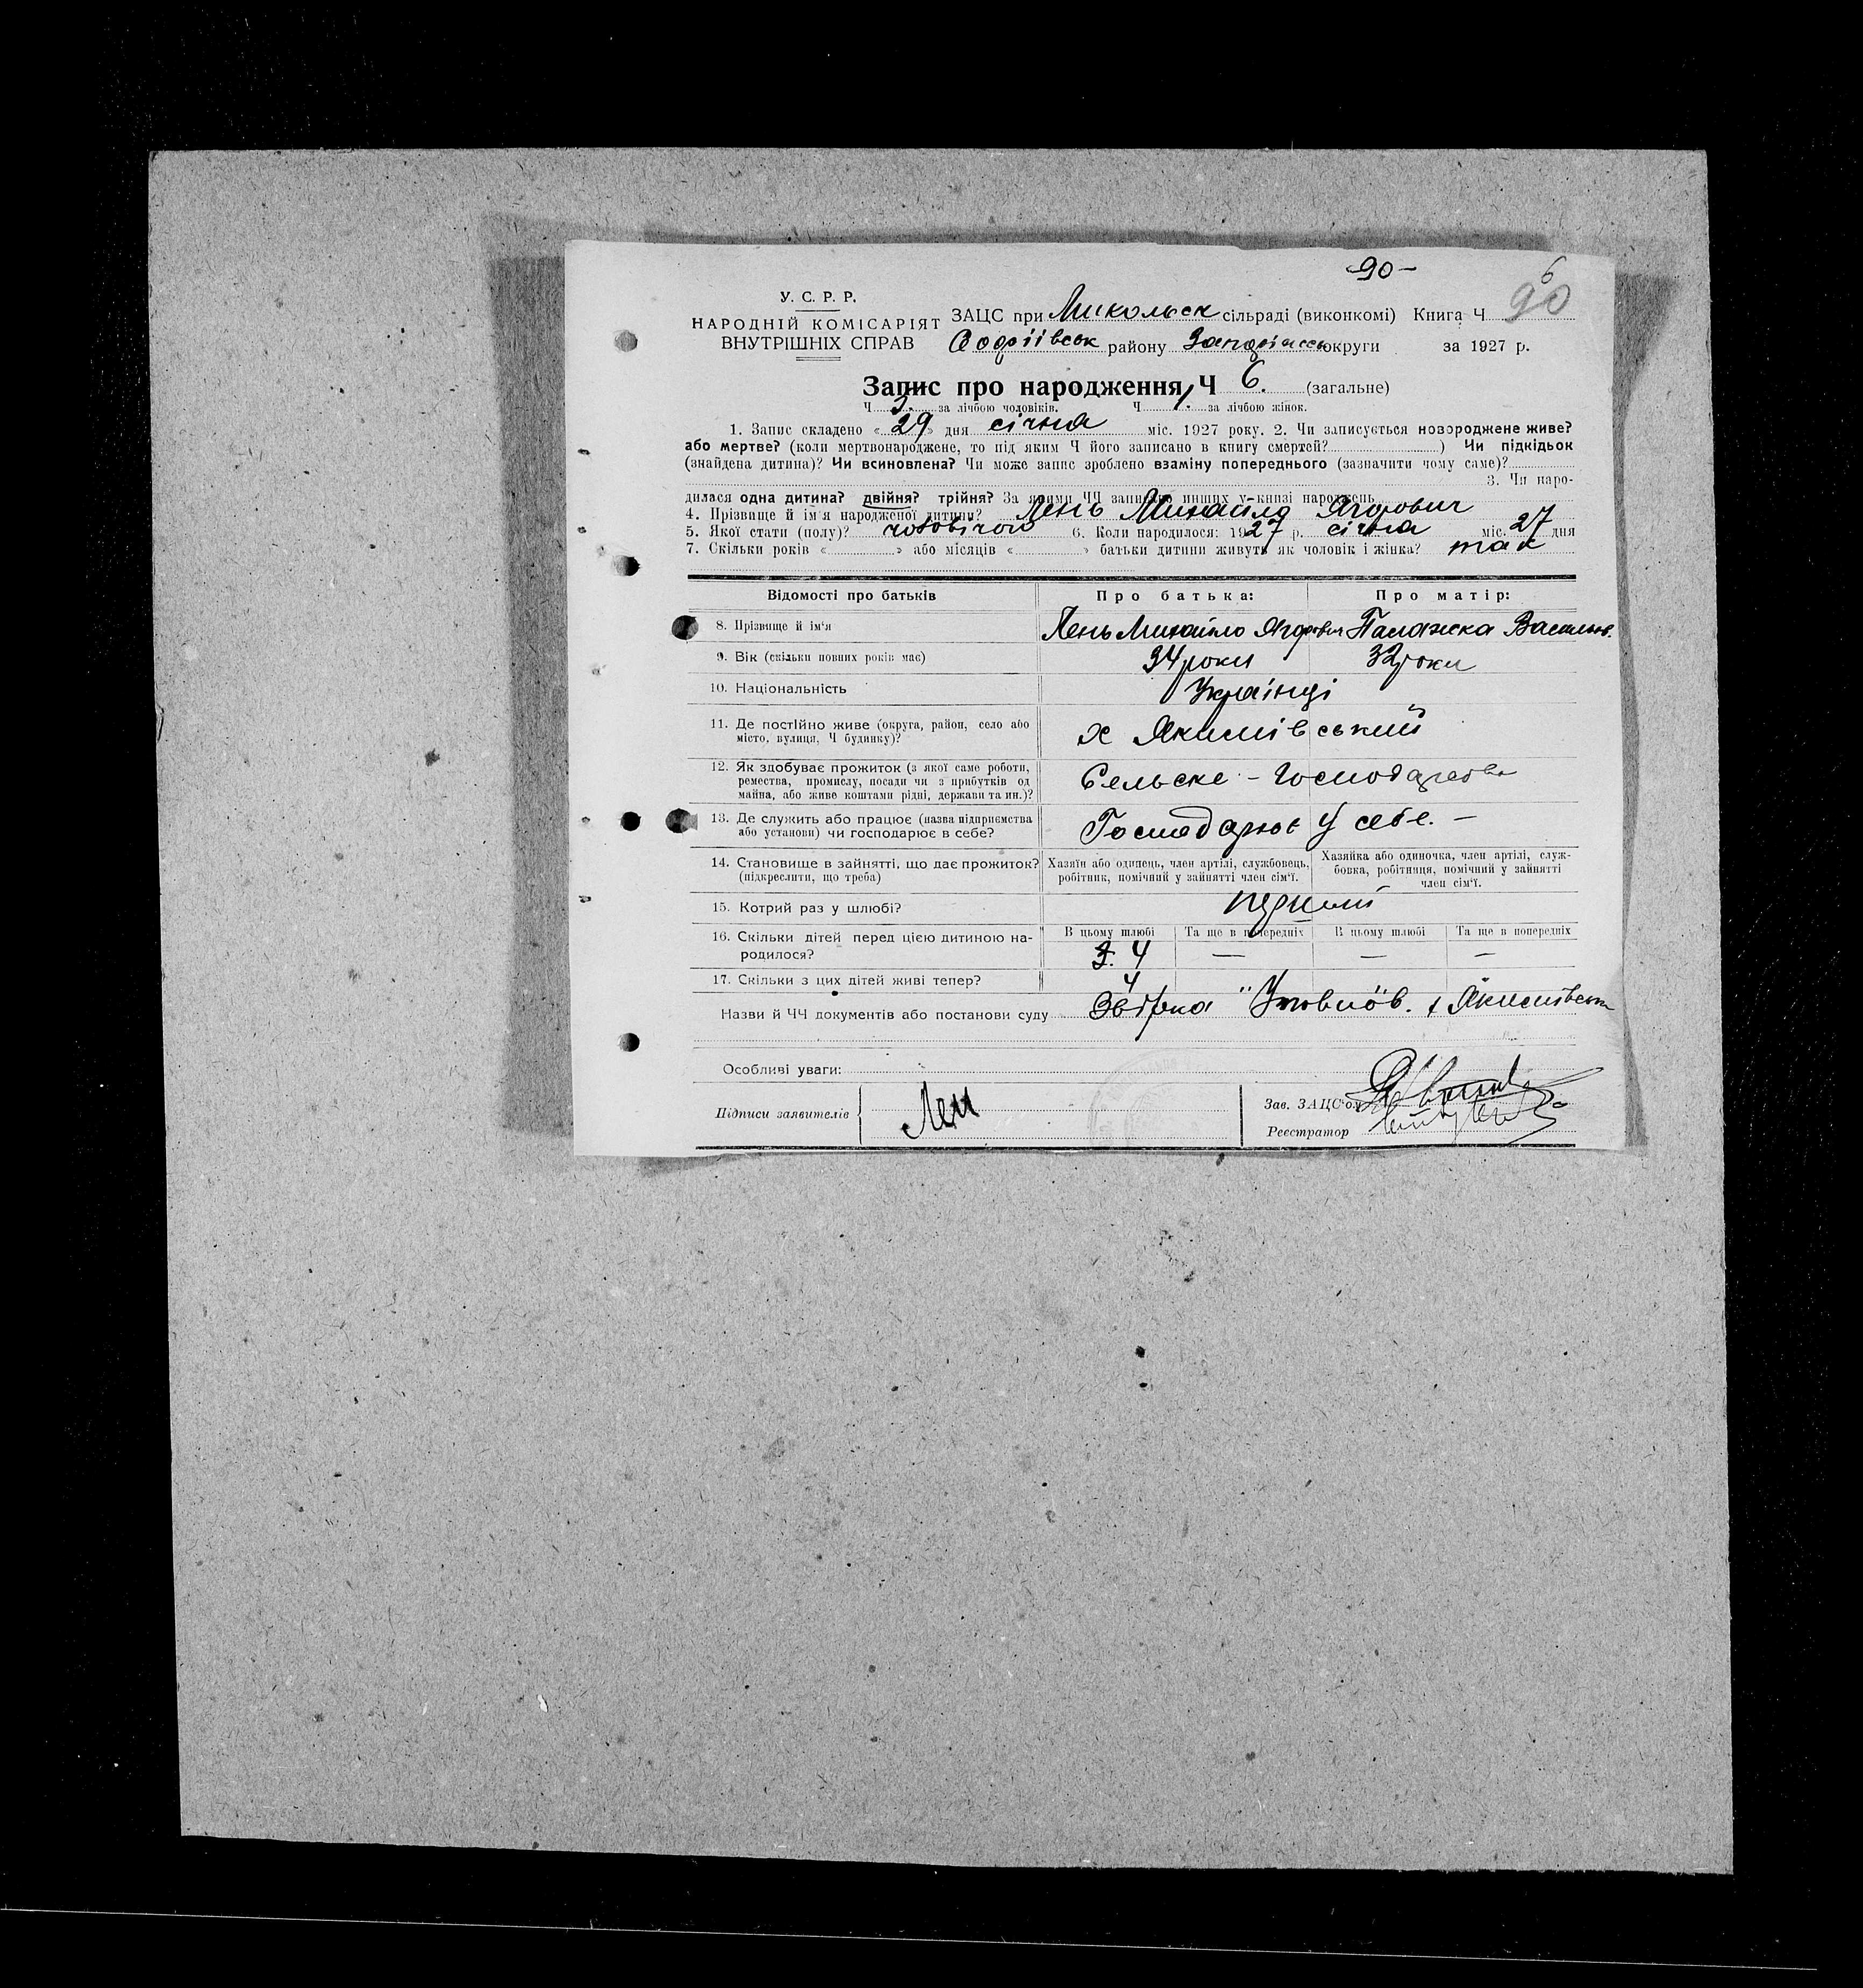 90-
6
90
У. С. Р. Р.
НАРОДНІЙ КОМІСАРІЯТ
ВНУТРІШНІХ СПРАВ
ЗАЦС при Микольск сільраді (виконкомі) Книга Ч
району округи за 1927 р.
Запис про народження Ч 6. (загальне)
Ч 3. за лічбою чоловіків. Ч 1. за лічбою жінок.
1. Запис складено « 29 » дня січня міс. 1927 року. 2. Чи записується новороджене живе?
або мертве? (коли мертвонароджене, то під яким Ч його записано в книгу смертей? ) Чи підкідьок
(знайдена дитина)? Чи всиновлена? Чи може запис зроблено взаміну попереднього (зазначити чому саме)?
3. Чи наро-
дилася одна дитина? двійня? трійня? За якими ЧЧ записано инших у книзі народжень
4. Прізвище й ім'я народженої дитини? Лень Михайло Ягорович
5. Якої стати (полу)? чоловічої 6. Коли народилося: 1927 р. січня міс. 27 дня
7. Скільки років « » або місяців « » батьки дитини живуть як чоловік і жінка? так
Відомості про батьків Про батька: Про матір:
8. Прізвище й ім'я Лень Михайло Ягорович Палажка Васильов.
9. Вік (скільки повних років має) 34 роки 32 роки
10. Національність Українці
11. Де постійно живе (округа, район, село або
місто, вулиця, Ч будинку)? х Якимівський
12. Як здобуває прожиток (з якої саме роботи,
ремества, промислу, посади чи з прибутків од
майна, або живе коштами рідні, держави та ин.)? Сельске - Господарство
13. Де служить або працює (назва підприємства
або установи) чи господарює в себе? Господарює у себе. -
14. Становище в зайнятті, що дає прожиток?
(підкреслити, що треба)
Хазяїн або одинець, член артілі, службовець,
робітник, помічний у зайнятті член сім'ї.
Хазяйка або одиночка, член артілі, служ-
бовка, робітниця, помічний у зайнятті
член сім'ї.
15. Котрий раз у шлюбі? перший
16. Скільки дітей перед цією дитиною на-
родилося?
В цьому шлюбі Та ще в попередніх В цьому шлюбі Та ще в попередніх
3. 4 — — —
17. Скільки з цих дітей живі тепер? 4
Назви й ЧЧ документів або постанови суду
Особливі уваги:
Підписи заявителів Лен
Зав. ЗАЦС'ом
Реєстратор